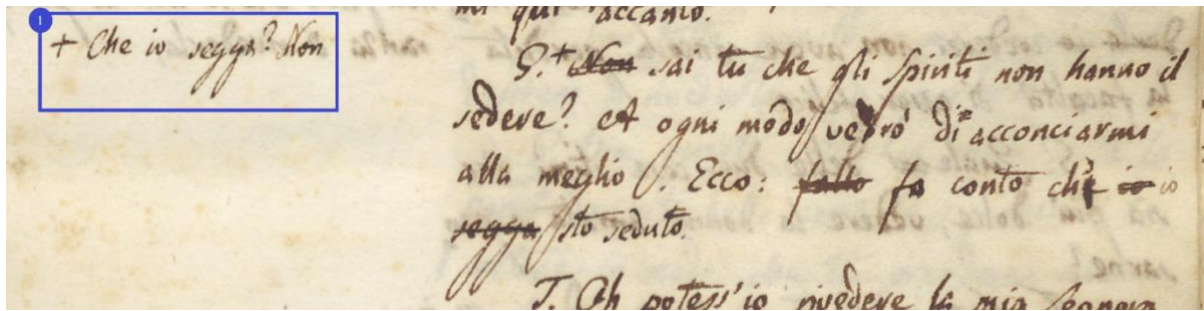 mi qui accanto.
+ Che io segga? Non
G.+ Non sai tu che gli Spiriti non hanno il
sedere? A ogni modo vedrò di acconciarmi
alla meglio. Ecco: fallo fa conto ch'io io
segga sto seduto.
T. Oh potess'io rivedere la mia Signora